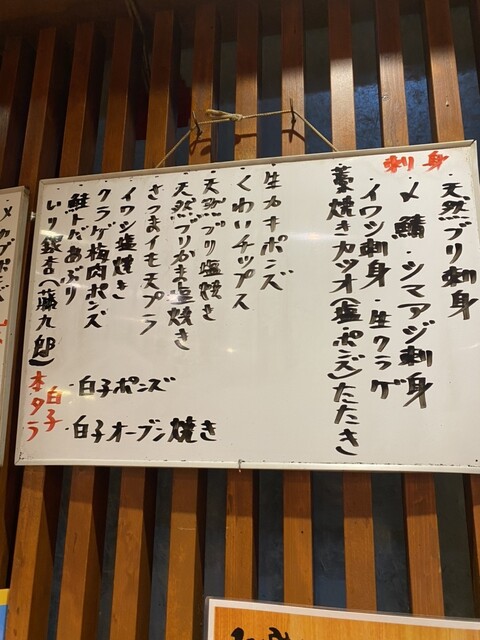 刺身
・天然ブリ刺身
・〆鯖・シマアジ刺身
・イワシ刺身・生クラゲ
・藁焼きカツオ(塩・ポンズ)たたき
・生カキポンズ
・くわいチップス
・天然ブリ塩焼き
・天然ブリかま塩焼き
・さつまイモ天プラ
・イワシ塩焼き
・クラゲ梅肉ポンズ
・鮭トバあぶり
・いり銀杏(藤九郎)
白子
本タラ
・白子ポンズ
・白子オーブン焼き
メカブポンズ